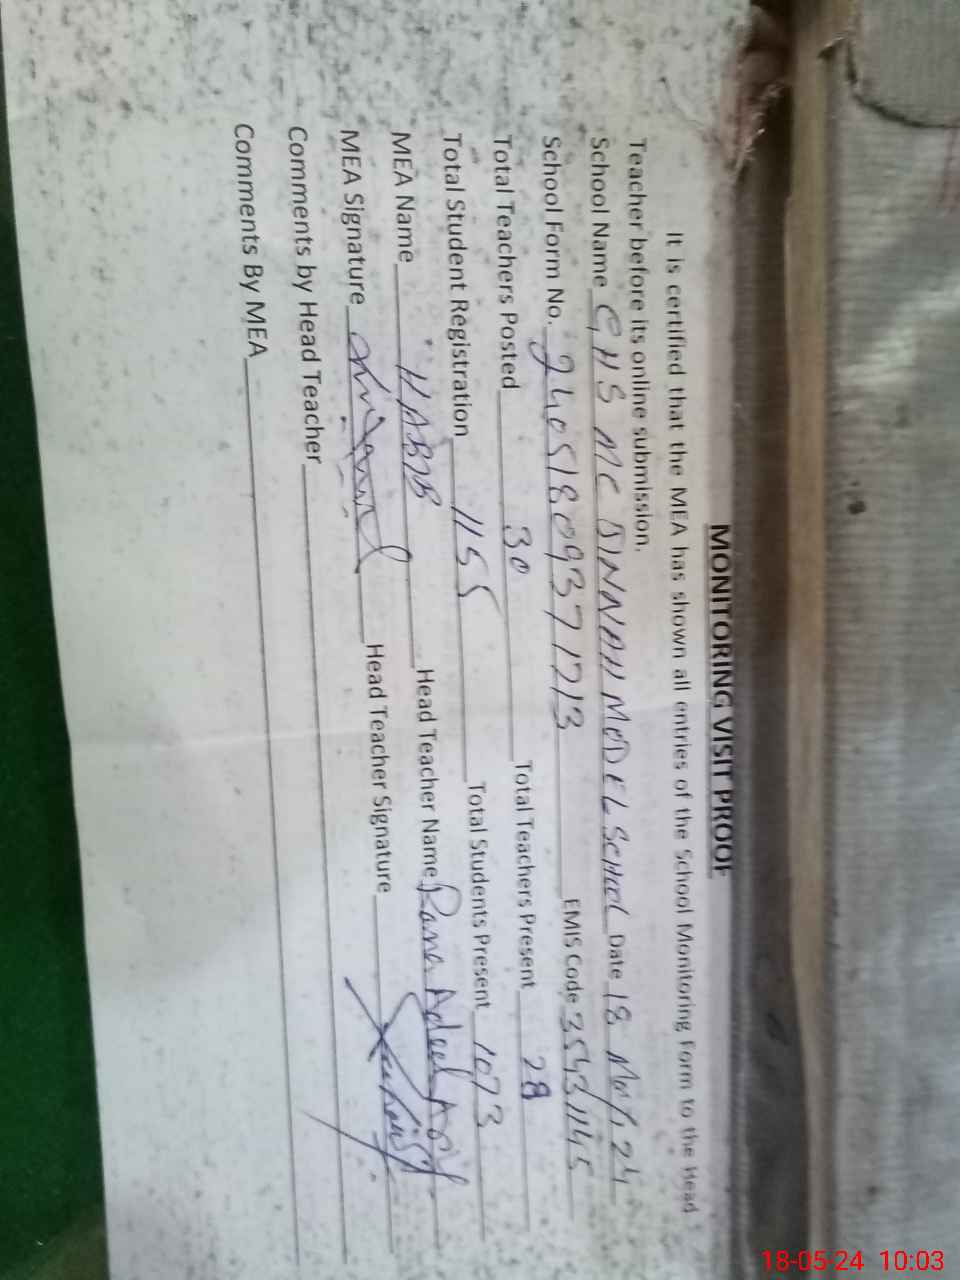 MONITORING VISIT PROOF
It is certified that the MEA has shown all entries of the School Monitoring Form to the Head
Teacher before its online submission.
School Name GHS MC JINNAH MODEL SCHOOL Date 18 May, 24
School Form No. 24051809371213 EMIS Code 35431145
Total Teachers Posted 30 Total Teachers Present 28
Total Student Registration 1155 Total Students Present 1073
MEA Name HABIB Head Teacher Name Rana Adeel Asif
MEA Signature Head Teacher Signature
Comments by Head Teacher
Comments By MEA
18-05-24 10:03